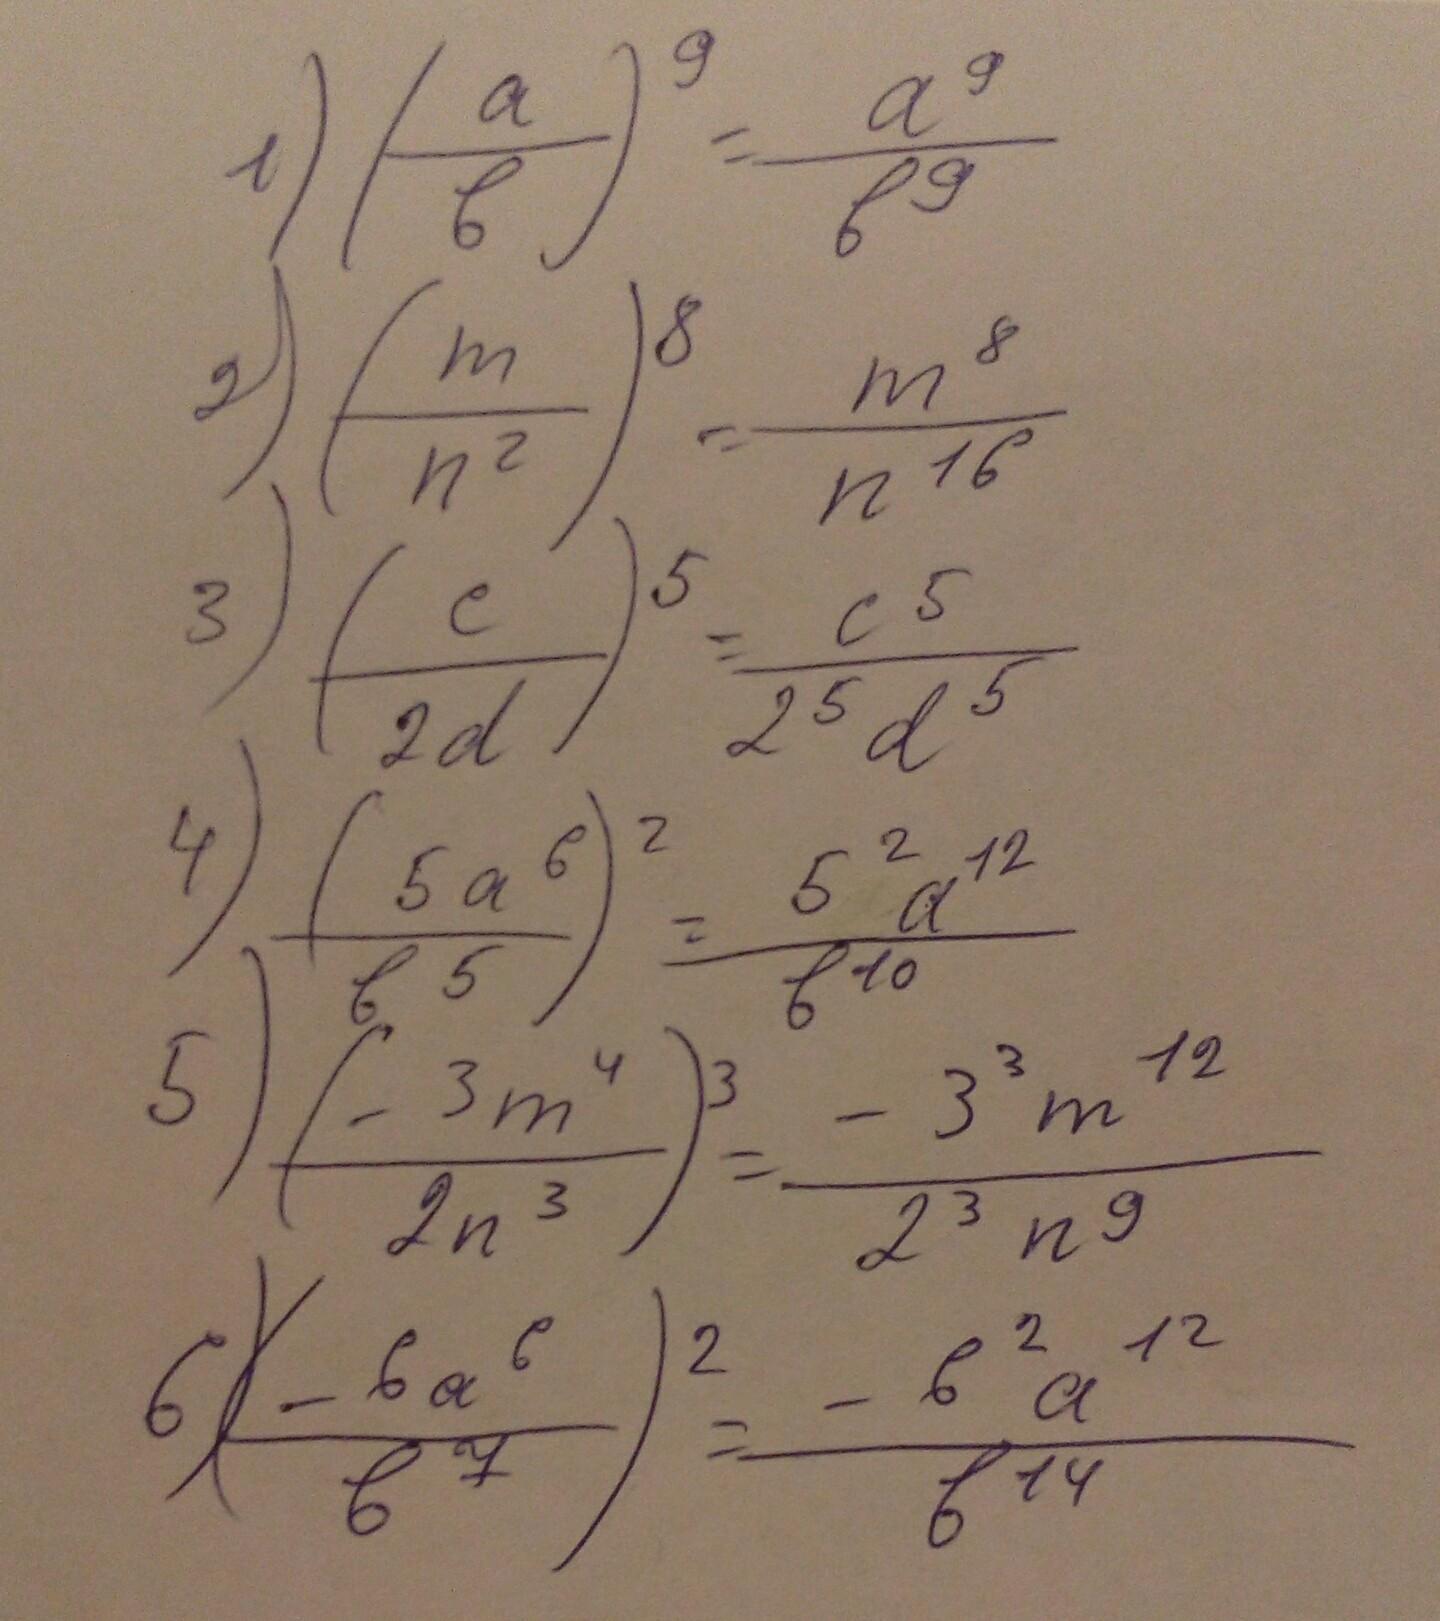 1) (a/b)^9 = a^9/b^9
2) (m/n^2)^8 = m^8/n^16
3) (c/2d)^5 = c^5/2^5 d^5
4) (5a^6/b^5)^2 = 5^2 a^12/b^10
5) (-3m^4/2n^3)^3 = -3^3 m^12/2^3 n^9
6) (-6a^6/b^7)^2 = -6^2 a^12/b^14